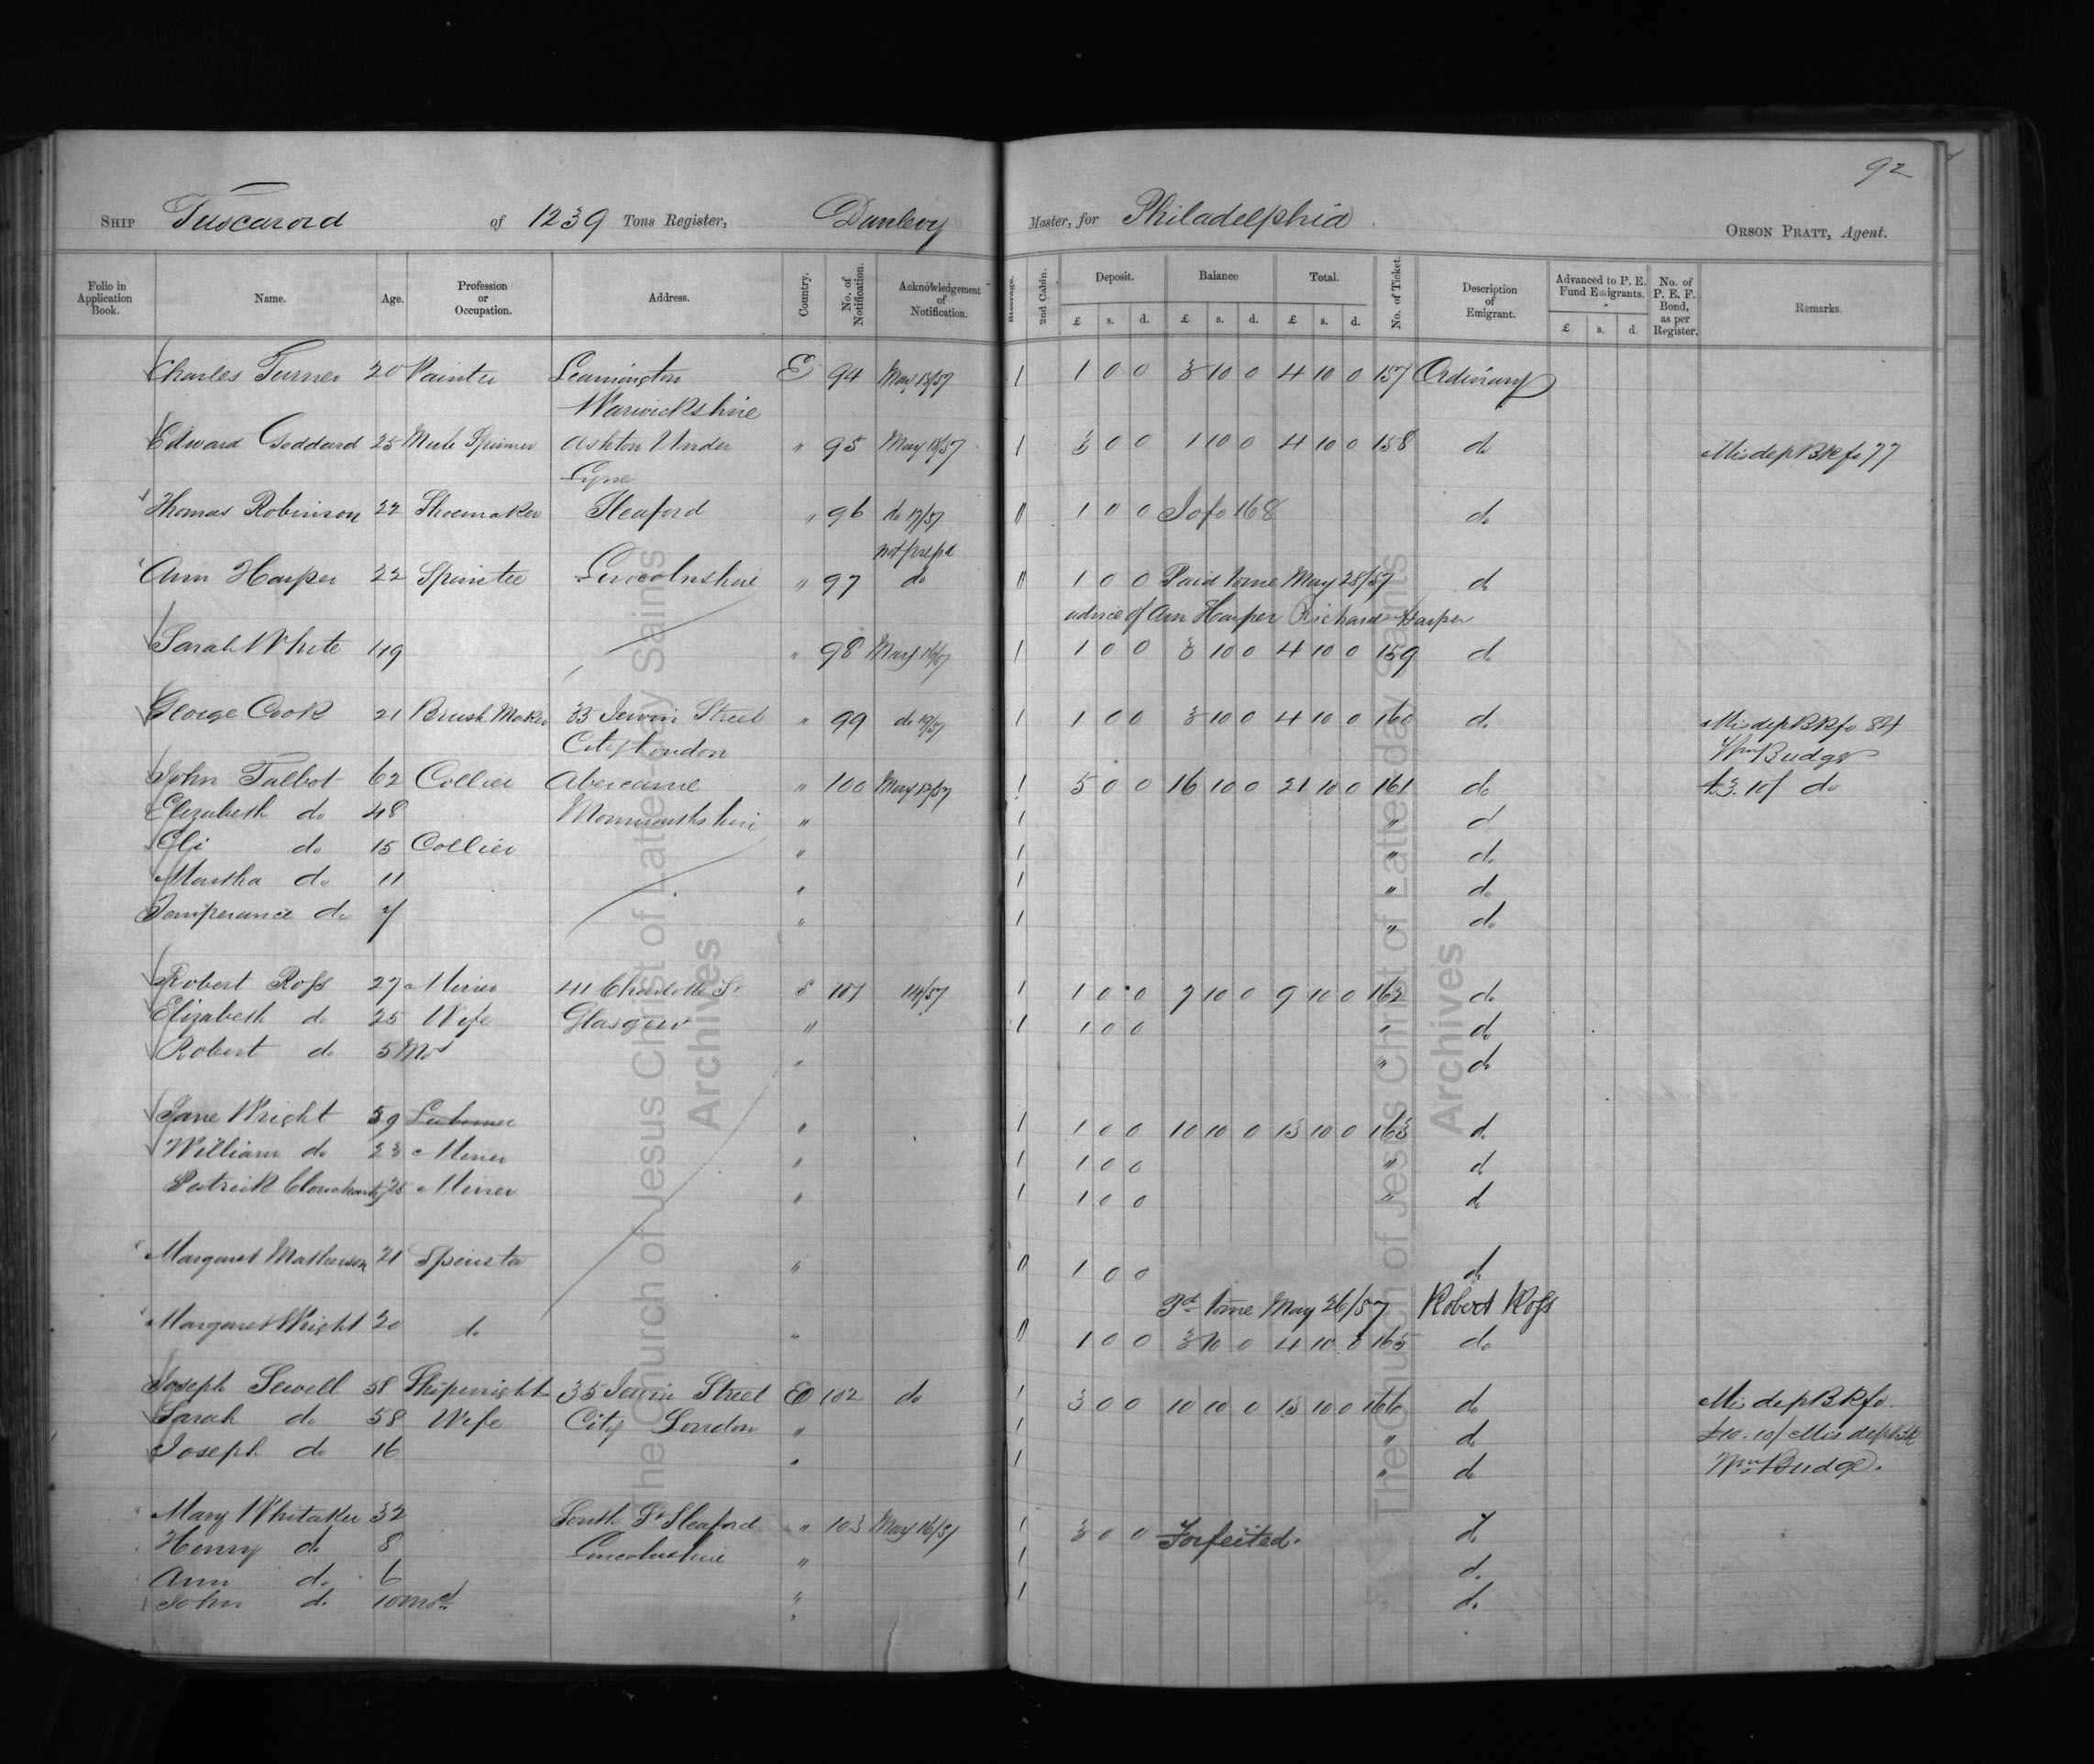 92
SHIP Tuscarora of 1239 Tons Register, Dunlevy Master, for Philadelphia. ORSON PRATT, Agent.
Folio in Application Book. Name. Age. Profession or Occupation. Address. Country. No. of Notification. Acknowledgement of Notification. Steerage. 2nd Cabin. Deposit. £ s. d. Balance £ s. d. Total. £ s. d. No. of Ticket. Description of Emigrant. Advanced to P. E. Fund Emigrants. £ s. d. No. of P. E. F. Bond, as per Register. Remarks.
Charles Turner 20 Painter Leamington E 94 May 18/57 1 1 0 0 3 10 0 4 10 0 157 Ordinary
Warwickshire
Edward Goddard 25 Mule Spinner Ashton Under " 95 May 18/57 1 3 0 0 1 10 0 4 10 0 158 do Mis dep BK fo 77
Lyne
Thomas Robinson 22 Shoemaker Sleaford " 96 do 17/57 0 1 0 0 To fo 168 do
not prepd
Ann Harper 22 Spinster Lincolnshire " 97 do 0 1 0 0 Paid Tome May 28/57 do
advice of Ann Harper Richard Harper
Sarah White 49 " 98 May 16/57 1 1 0 0 3 10 0 4 10 0 159 do
George Cook 21 Brush Maker 35 Jewin Street " 99 do 19/57 1 1 0 0 3 10 0 4 10 0 160 do Mis dep BK fo 84
City London Wm Budge
John Talbot 62 Collier Abercarne " 100 May 17/57 1 5 0 0 16 10 0 21 10 0 161 do £3.10/ do
Elizabeth do 48 Monmouthshire " 1 " d
Eli do 15 Collier " 1 " do
Martha do 11 " 1 " do
Temperance do 7 " 1 " do
Robert Ross 27 Miner 41 Charlotte St S 101 14/57 1 1 0 0 7 10 0 9 10 0 162 do
Elizabeth do 25 Wife Glasgow " 1 1 0 0 " do
Robert do 5 Mos " " do
Jane Wright 59 Labourer " 1 1 0 0 10 10 0 13 10 0 163 d.
William do 23 Miner " 1 1 0 0 " d
Patrick 25 Miner " 1 1 0 0 " d
Margaret Matherson 21 Spinster " 0 1 0 0 d.
pd Tome May 26/57 Robert Ross
Margaret Wright 20 do " 0 1 0 0 3 10 0 4 10 0 165 do
Joseph Sewell 58 Shipwright 35 Jewin Street E 102 do 1 3 0 0 10 10 0 13 10 0 166 do Mis dep BK fo.
Sarah do 58 Wife City London " 1 " do £10.10/ Mis dep BK
Joseph do 16 " 1 " do Wm Budge.
Mary Whitaker 32 South St Sleaford " 103 May 16/57 1 3 0 0 Forfeited. d.
Henry do 8 Lincolnshire " 1 d.
Ann do. 6 " 1 d.
John d. 10 mos "
The Church of Jesus Christ of Latter-day Saints
Archives
The Church of Jesus Christ of Latter-day Saints
Archives